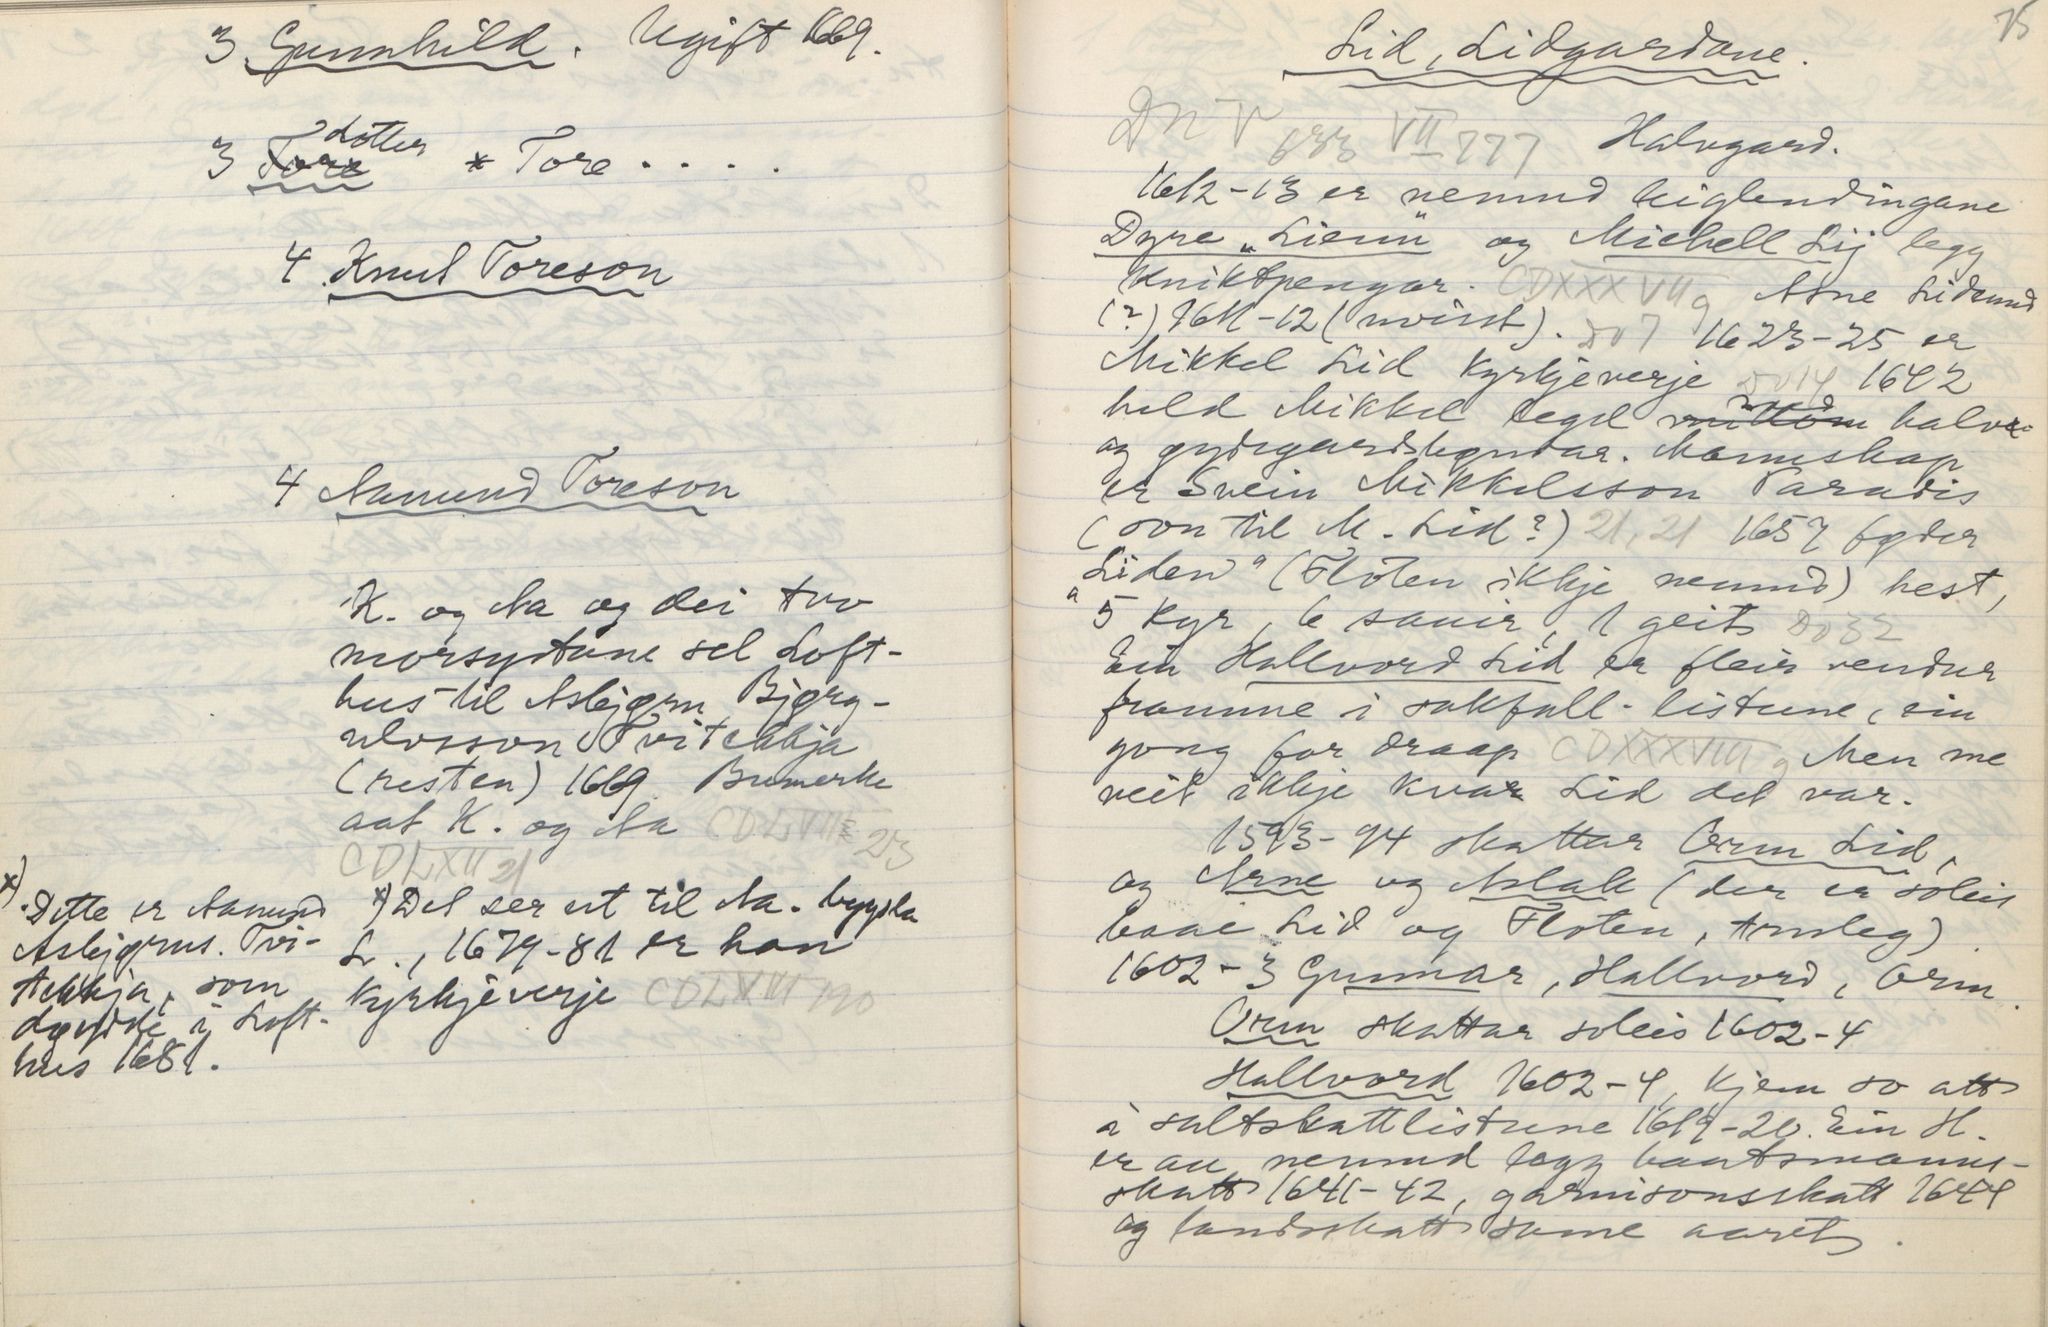 3 Gunnhild. Ugift 1669.
3 Tore dotter * Tore . . . .
4 Knut Toreson
4 Aamund Toreson
K. og Aa og dei tvo
morsystune sel Loft-
hus til Asbjørn Bjørg-
ulvsson Tvitekkja
(resten) 1669. Bumerke
aat K. og Aa
CDLXII 21
x) Det ser ut til Aa. bygsla
L., 1679-81 er han
kyrkjeverje CDLXVIII 190
x) Dette er Aamund
Asbjørns. Tvi-
tekkja, som
døydde i Loft-
hus 1681.
75
Lid, Lidgardane.
DN V 633 VII 777 Halvgard.
1612-13 er nemnd leiglendingane
Dyre „Lienn" og Michell Lij legg
kniktpengar. CDXXXVII 9 Arne Lidsund
(?) 1611-12 (uvisst). DO 7 1623-25 er
Mikkel Lid kyrkjeverje DO 14 1642
held Mikkel legd med halve-
og øydegardslegndar. Mannskap
er Svein Mikkelsson Paradis
(son til M. Lid?) 21, 21 1657 føder
„Liden" (Floten ikkje nemnd) hest,
5 kyr, 6 sauir, 1 geit DO 32
Ein Hallvord Lid er fleir vendur
framme i sakfall-listune, ein
gong for draap CDXXXVIII 9 Men me
veit ikkje kvar Lid det var.
1593-94 skattar Orm Lid,
og Arne og Aslak (der er soleis
baae Lid og Floten, truleg)
1602-3 Gunnar, Hallvord, Orm.
Orm skattar soleis 1602-4
Hallvord 1602-4, kjem so att
i saltskattlistune 1619-20. Ein H.
er au nemnd legg baatsmanns-
skatt 1641-42, garnisonsskatt 1644
og landskatt same aaret.